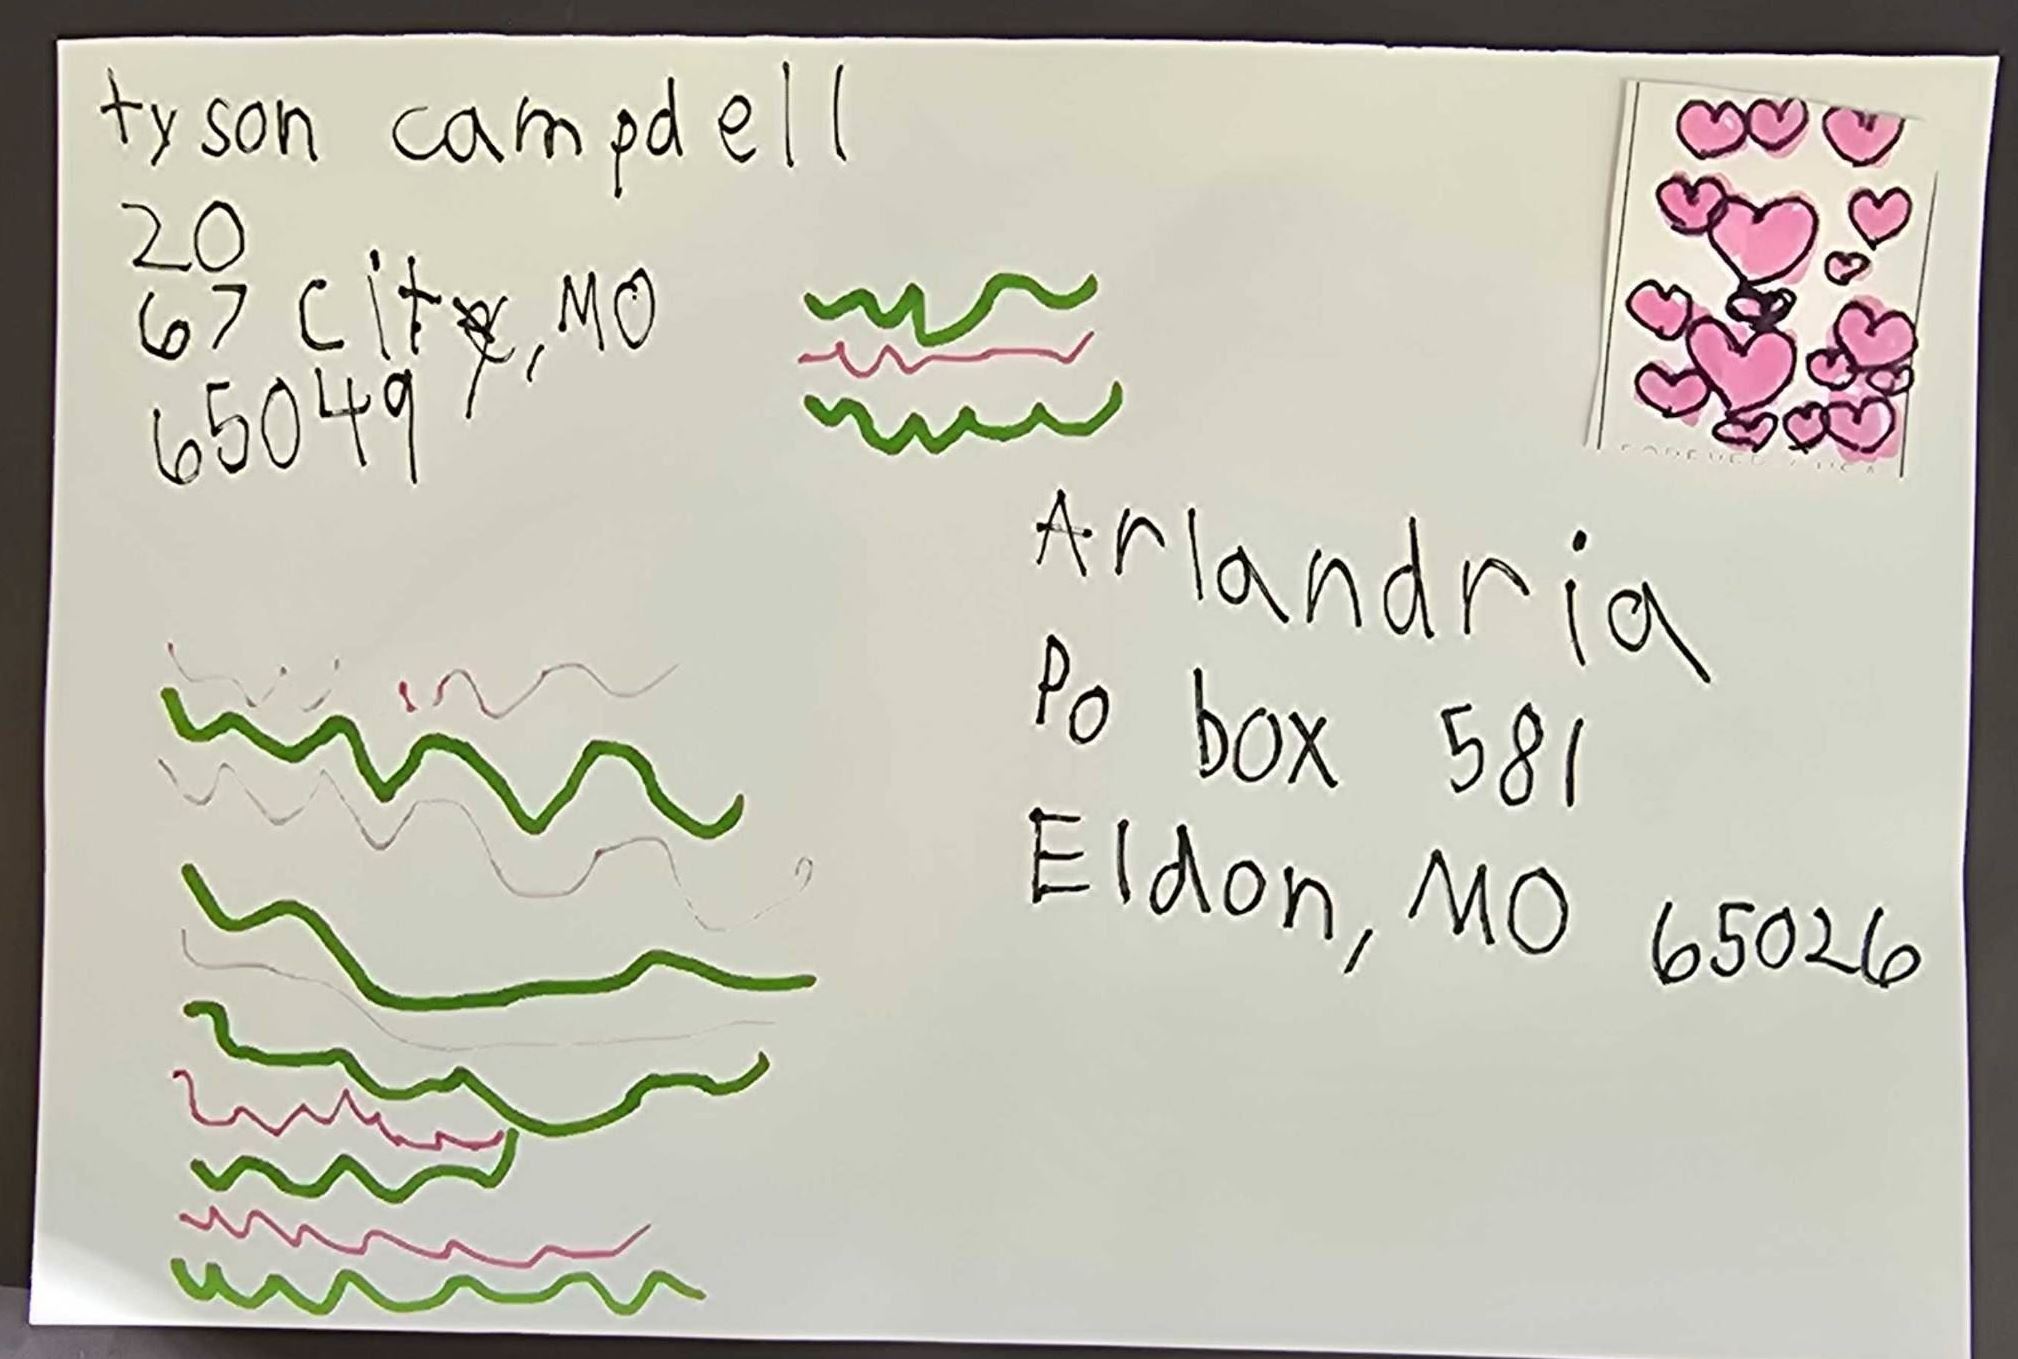 tyson campdell
20
67 city, MO
65049
Arlandria
Po box 581
Eldon, MO 65026
FOREVER / USA